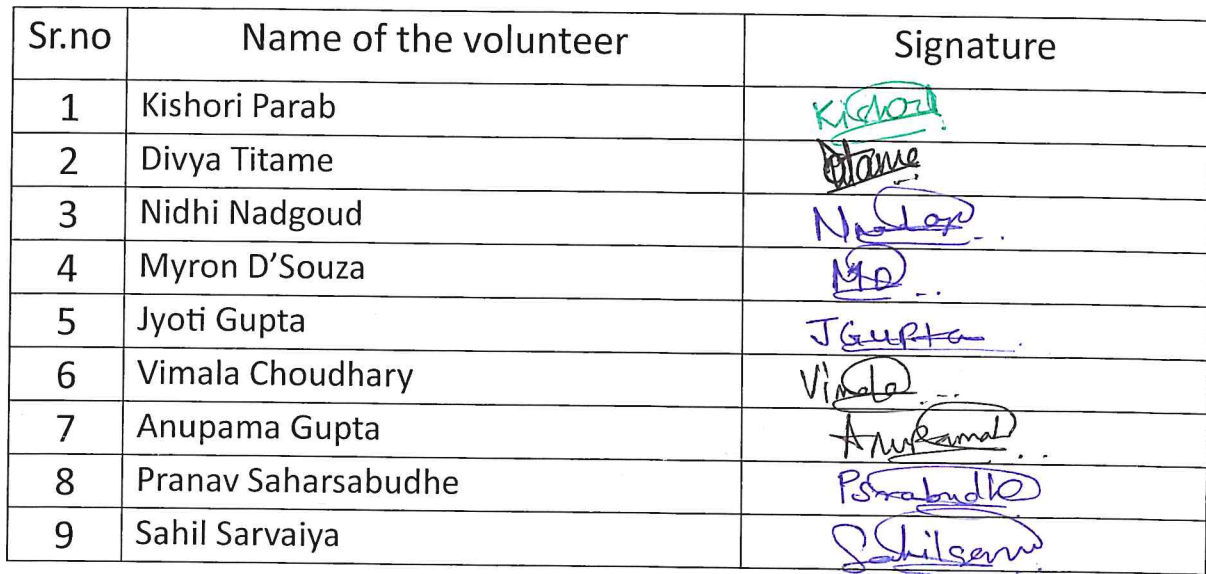 Sr.no Name of the volunteer Signature
1 Kishori Parab Kishori
2 Divya Titame Dtame
3 Nidhi Nadgoud
4 Myron D'Souza MD
5 Jyoti Gupta JGupta
6 Vimala Choudhary Vimala
7 Anupama Gupta Anupama
8 Pranav Saharsabudhe
9 Sahil Sarvaiya